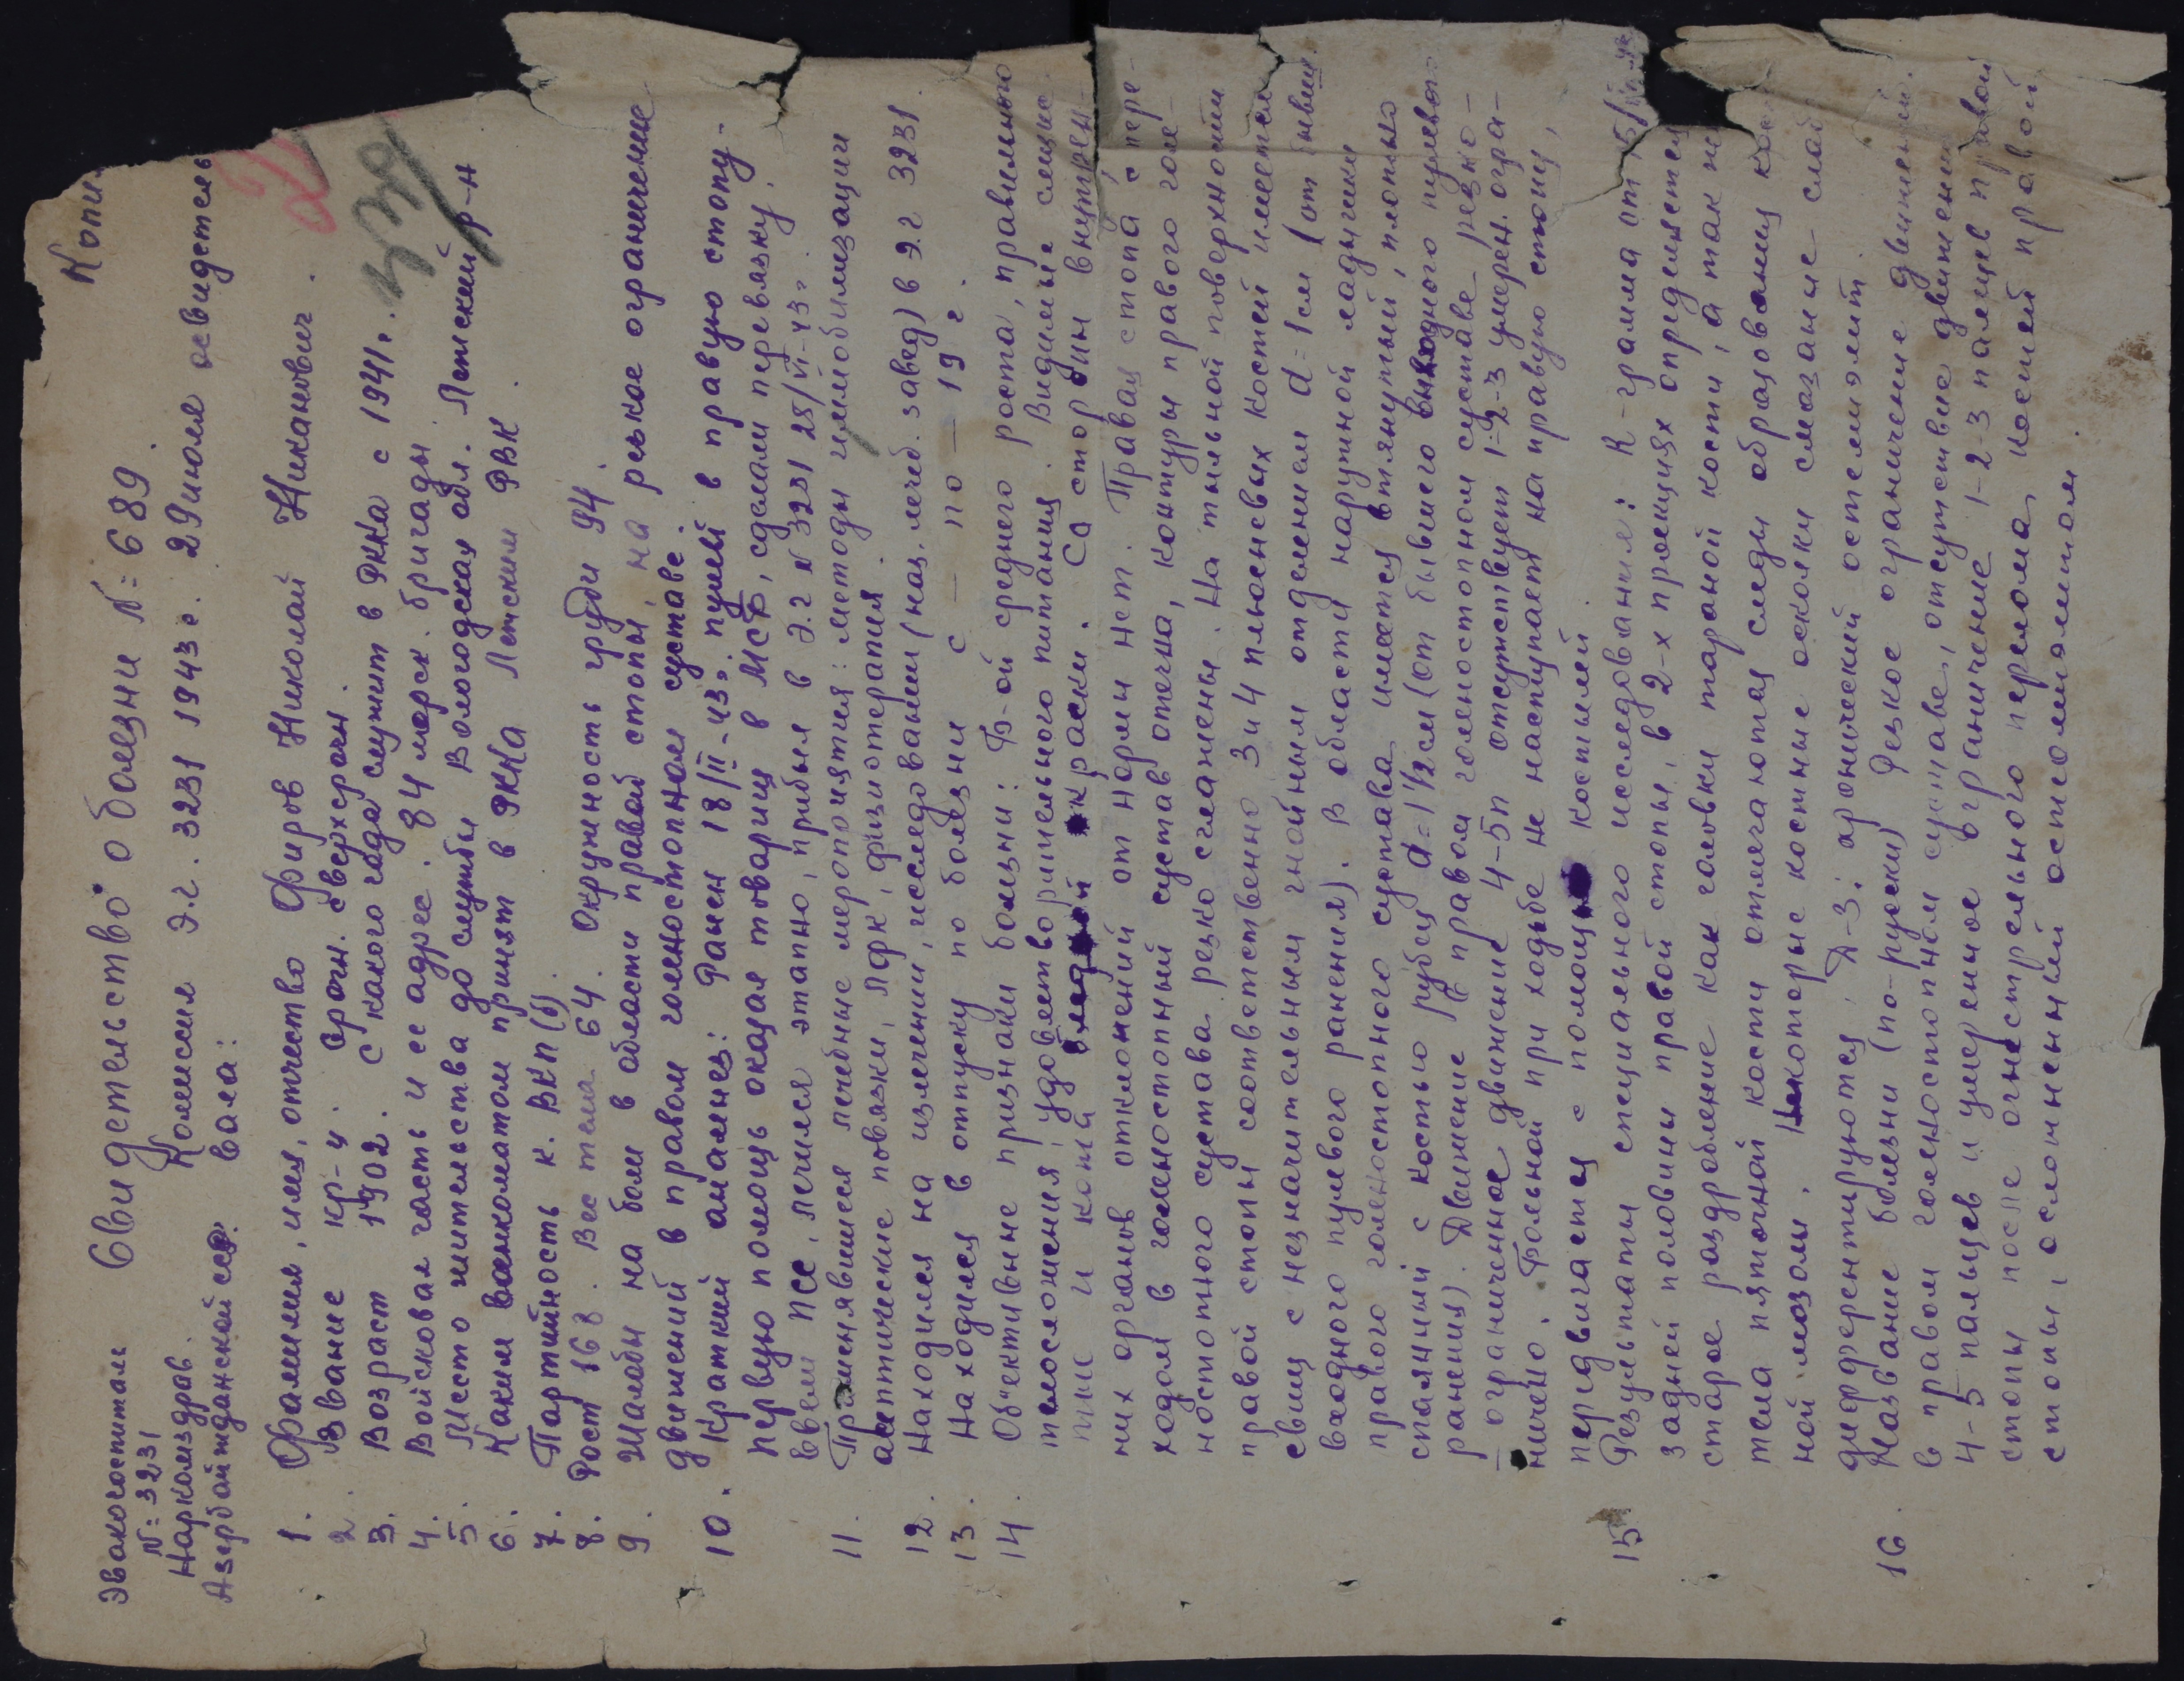 Копия
Эвакогоспиталь
№ 3231
Наркомздрав.
Азербайджанской сср.
Свидетельство о болезни № 689.
Комисия э.г. 3231 1943 г. 29 июля освидетель
вала:
1. Фамилия, имя, отчество Фиров Николай Никанович.
2. Звание кр-ц. срочн. сверхсрочн.
3. Возраст 1902. с какого года служит в РККА с 1941 г.
4. Войсковая часть и ее адрес. 84 морск. бригады
5. Место жительства до службы Вологодская обл. Летский р-н
6. Каким военкоматом принят в РККА Летским РВК.
7. Партийность к. ВКП(б)
8. Рост 168. Вес тела 64. Окружность груди 94.
9. Жалобы на боли в области правой стопы, на резкое ограничение
движений в правом голеностопном суставе.
10. Краткий анамнез: Ранен 18/II-43г. пулей в правую стопу.
Первую помощь оказал товарищ в МСБ, сделали перевязку.
Ввели ПСС, лечился этапно, прибыл в Э.г № 3231 28/VI-43г.
11. Применявшиеся лечебные мероприятия: методы иммобилизации
асептические повязки, ЛФК, физиотерапия.
12. Находился на излечении, исследовании (наз. лечеб. завед) в э.г 3231.
13. Находился в отпуску по болезни с — по — 19 г.
14. Об"ективные признаки болезни: Б-ой среднего роста, правильного
телосложения, удовлетворительного питания. Видимые слизис-
тые и кожа бледной окраски. Со сторонын внутрен-
них органов отклонений от нормы нет. Правая стопа с пере-
ходом в голеностопный сустав отечна, контуры правого голе-
ностопного сустава резко сглажены. На тыльной поверхности
правой стопы соответственно 3 и 4 плюсневых костей имеется
свищ с незначительным гнойным отделением d=1см (от бывш.
входного пулевого ранения). В области наружной лодыжки
правого голеностопного сустава имеется втянутый, плотно
спаянный с костью рубец d=1½см (от бывшего выходного пулевого
ранения). Движение в правом голеностопном суставе резко-
— ограниченное движение 4-5п отсутствует 1-2-3 умерен. огра-
ничено. Больной при ходьбе не наступает на правую стопу,
передвигается с помощью костылей.
15 Результаты специального исследования: R-грамма от 15/
задней половины правой стопы, в 2-х проекциях определяется
старое раздробление как головки таранной кости, а так же
тела пяточной кости отмечаются следы образования
ной мозоли. Некоторые костные осколки смазаные слаб
диференцируются, Д-з: хронический остеомиэлит.
16. Название болезни (по-русски) Резкое ограничение движений.
в правом голеностопном суставе, отсутствие движения
4-5 пальцев и умеренное ограничение 1-2-3 пальцев правой
стопы после огнестрельного перелома костей правой
стопы, осложненный остеомиэлитом.